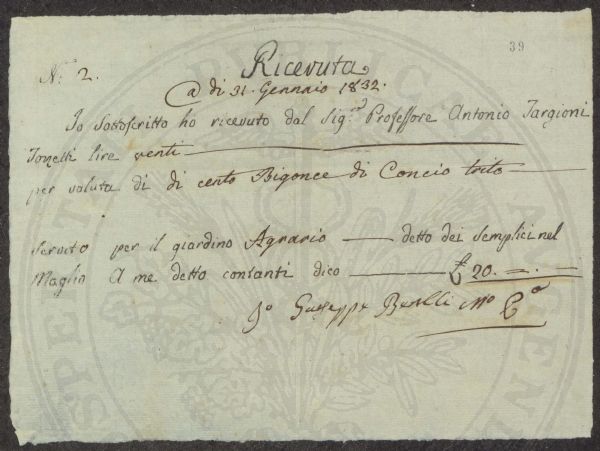 39
N: 2.
Ricevuta
A di 31. Gennaio 1832.
Io Sottoscritto ho ricevuto dal Sig.r Professore Antonio Targioni
Tozzetti lire venti
per valuta di di cento Bigonce di Concio trito
servito per il giardino Agrario — detto dei Semplici nel
Maglio A me detto contanti dico — £ 20. =.
Io Giuseppe